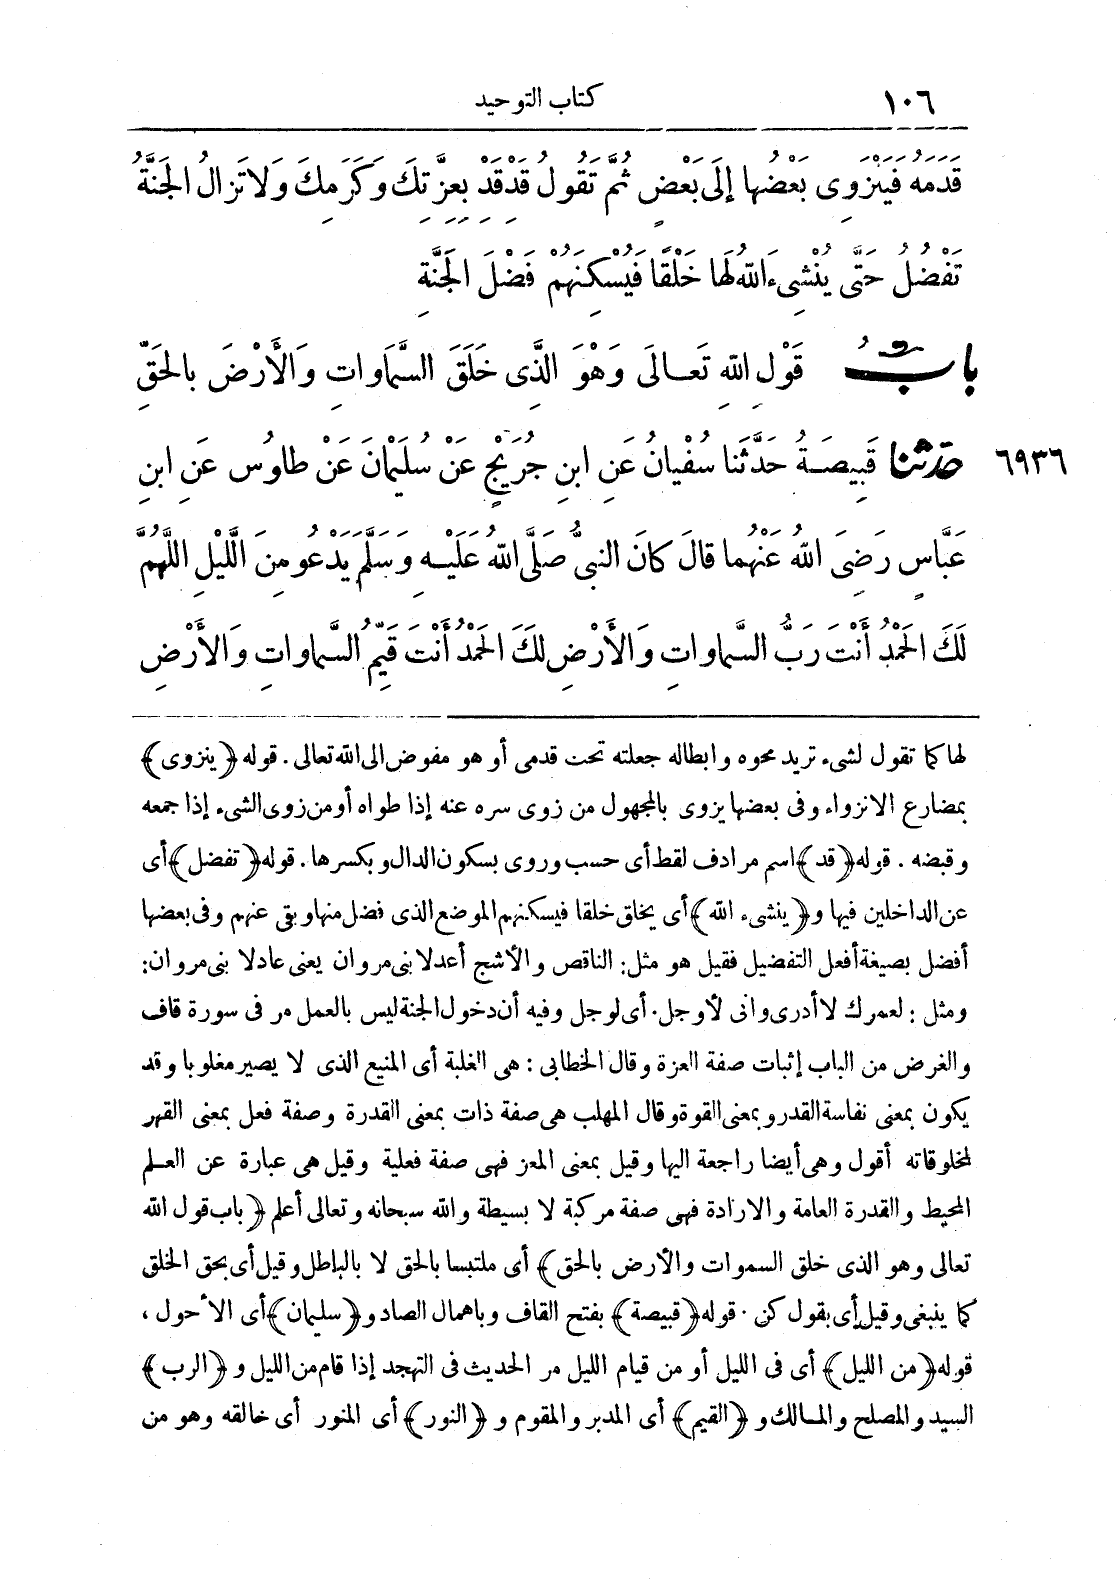 ١٠٦ كتاب التوحيد
قَدَمَهُ فَيَنْزَوِى بَعْضُهَا إِلَى بَعْضٍ ثُمَّ تَقُولُ قَدْ قَدْ بِعِزَّتِكَ وَكَرَمِكَ وَلَا تَزَالُ الْجَنَّةُ
تَفْضُلُ حَتَّى يُنْشِىءَ اللهُ لَهَا خَلْقًا فَيُسْكِنَهُمْ فَضْلَ الْجَنَّةِ
بابُ قَوْلِ اللهِ تَعَالَى وَهُوَ الَّذِى خَلَقَ السَّمَاوَاتِ وَالْأَرْضَ بِالْحَقِّ
٦٩٣٦ حدثنا قَبِيصَةُ حَدَّثَنَا سُفْيَانُ عَنِ ابنِ جُرَيْجٍ عَنْ سُلَيْمَانَ عَنْ طَاوُسٍ عَنِ ابنِ
عَبَّاسٍ رَضِىَ اللهُ عَنْهُمَا قَالَ كَانَ النبىُّ صَلَّى اللهُ عَلَيْهِ وَسَلَّمَ يَدْعُو مِنَ الَّليْلِ اللَّهُمَّ
لَكَ الْحَمْدُ أَنْتَ رَبُّ السَّمَاوَاتِ وَالْأَرْضِ لَكَ الْحَمْدُ أَنْتَ قَيِّمُ السَّمَاوَاتِ وَالْأَرْضِ
لها كما تقول لشىء تريد محوه وابطاله جعلته تحت قدمى أو هو مفوض الى الله تعالى . قوله ﴿ينزوى﴾
بمضارع الانزواء وفى بعضها يزوى بالمجهول من زوى سره عنه إذا طواه أو من زوى الشىء إذا جمعه
وقبضه . قوله ﴿قد﴾ اسم مرادف لقط أى حسب وروى بسكون الدال وبكسرها . قوله ﴿تفضل﴾ أى
عن الداخلين فيها و﴿ينشىء الله﴾ أى يخلق خلقا فيسكنهم الموضع الذى فضل منها وبقى عنهم وفى بعضها
أفضل بصيغة أفعل التفضيل فقيل هو مثل: الناقص والأشج أعدلا بنى مروان يعنى عادلا بنى مروان:
ومثل : لعمرك لا أدرى وانى لأوجل. أى لوجل وفيه أن دخول الجنة ليس بالعمل مر فى سورة قاف
والغرض من الباب إثبات صفة العزة وقال الخطابى : هى الغلبة أى المنيع الذى لا يصير مغلوبا وقد
يكون بمعنى نفاسة القدر وبمعنى القوة وقال المهلب هى صفة ذات بمعنى القدرة وصفة فعل بمعنى القهر
لمخلوقاته أقول وهى أيضا راجعة اليها وقيل بمعنى المعز فهى صفة فعلية وقيل هى عبارة عن العلم
المحيط والقدرة العامة والارادة فهى صفة مركبة لا بسيطة والله سبحانه وتعالى أعلم ﴿باب قول الله
تعالى وهو الذى خلق السموات والأرض بالحق﴾ أى ملتبسا بالحق لا بالباطل وقيل أى بحق الخلق
كما ينبغى وقيل أى بقول كن . قوله ﴿قبيصة﴾ بفتح القاف وباهمال الصاد و﴿سليمان﴾ أى الأحول ،
قوله ﴿من الليل﴾ أى فى الليل أو من قيام الليل مر الحديث فى التهجد إذا قام من الليل و ﴿الرب﴾
السيد والمصلح والمالك و ﴿القيم﴾ أى المدبر والمقوم و ﴿النور﴾ أى المنور أى خالقه وهو من